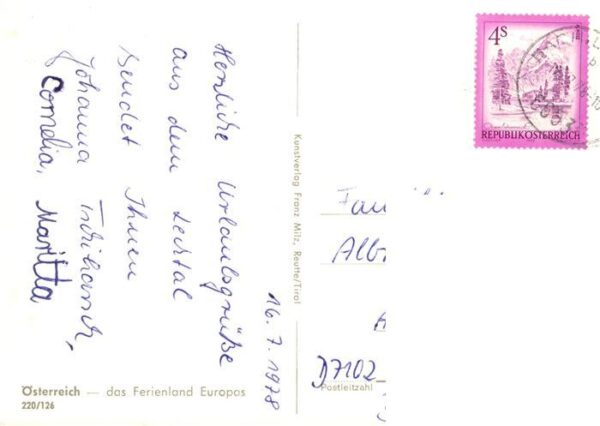 Herzliche Urlaubsgrüße
aus dem Lechtal
sendet Ihnen
Johanna
Cornelia, Maritta
16.7.1978
Österreich — das Ferienland Europas
220/126
Kunstverlag Franz Milz, Reutte/Tirol
4S
REPUBLIK ÖSTERREICH
Fam
Alb
A
D7102
Postleitzahl